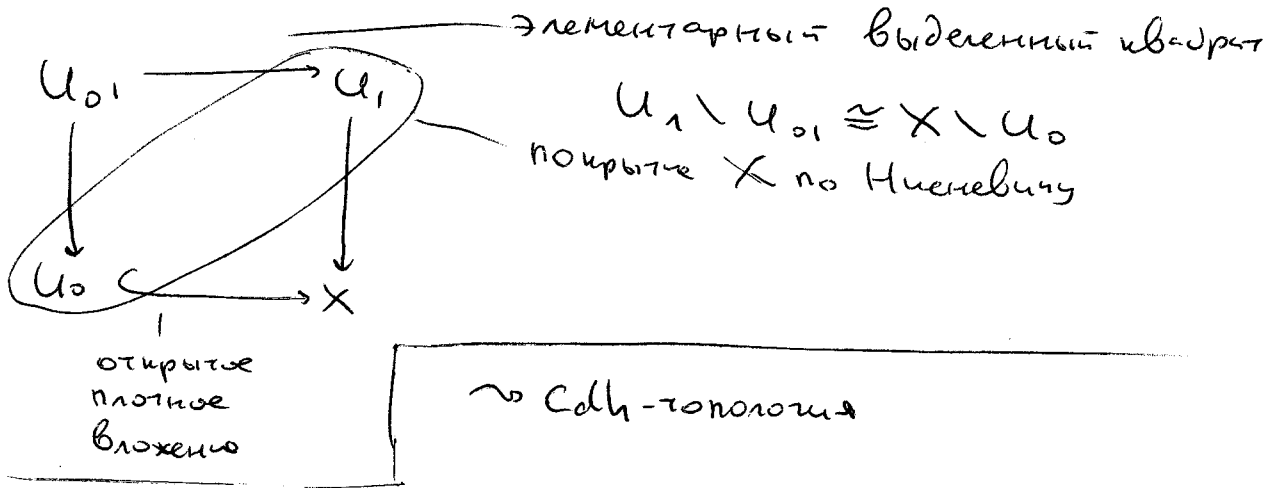 элементарный выделенный квадрат
U₀₁ → U₁
U₁ \ U₀₁ ≅ X \ U₀
покрытие X по Нисневичу
U₀ ↪ X
открытое
плотное
вложение
⇝ Cdh-топология